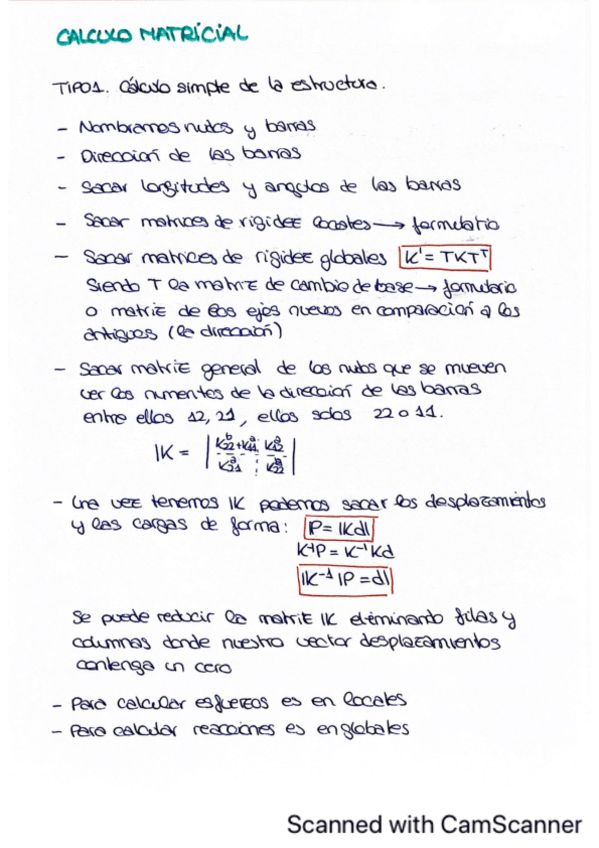 CALCULO MATRICIAL
TIPO1. Cálculo simple de la estructura.
- Nombramos nudos y barras
- Dirección de las barras
- Sacar longitudes y angulos de las barras
- Sacar matrices de rigidez locales → formulario
- Sacar matrices de rigidez globales K' = TKTᵀ
Siendo T la matriz de cambio de base → formulario
o matriz de los ejes nuevos en comparación a los
antiguos (la dirección)
- Sacar matriz general de los nudos que se mueven
ver los numeros de la dirección de las barras
entre ellos 12, 21, ellos solos 22 o 11.
IK = | K₂₂ᵇ+K₁₁ᵃ K₁₂ᵃ |
| K₂₁ᵃ K₂₂ᵃ |
- Una vez tenemos IK podemos sacar los desplazamientos
y las cargas de forma: P = IKdl
K⁻¹P = K⁻¹Kd
IK⁻¹ IP = dl
Se puede reducir la matriz IK eliminando filas y
columnas donde nuestro vector desplazamientos
contenga un cero
- Para calcular esfuerzos es en locales
- Para calcular reacciones es en globales
Scanned with CamScanner